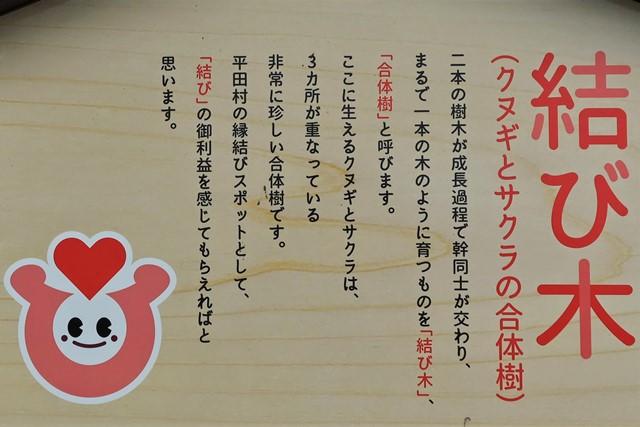 結び木
(クヌギとサクラの合体樹)
二本の樹木が成長過程で幹同士が交わり、
まるで一本の木のように育つものを「結び木」、
「合体樹」と呼びます。
ここに生えるクヌギとサクラは、
3カ所が重なっている
非常に珍しい合体樹です。
平田村の縁結びスポットとして、
「結び」の御利益を感じてもらえればと
思います。